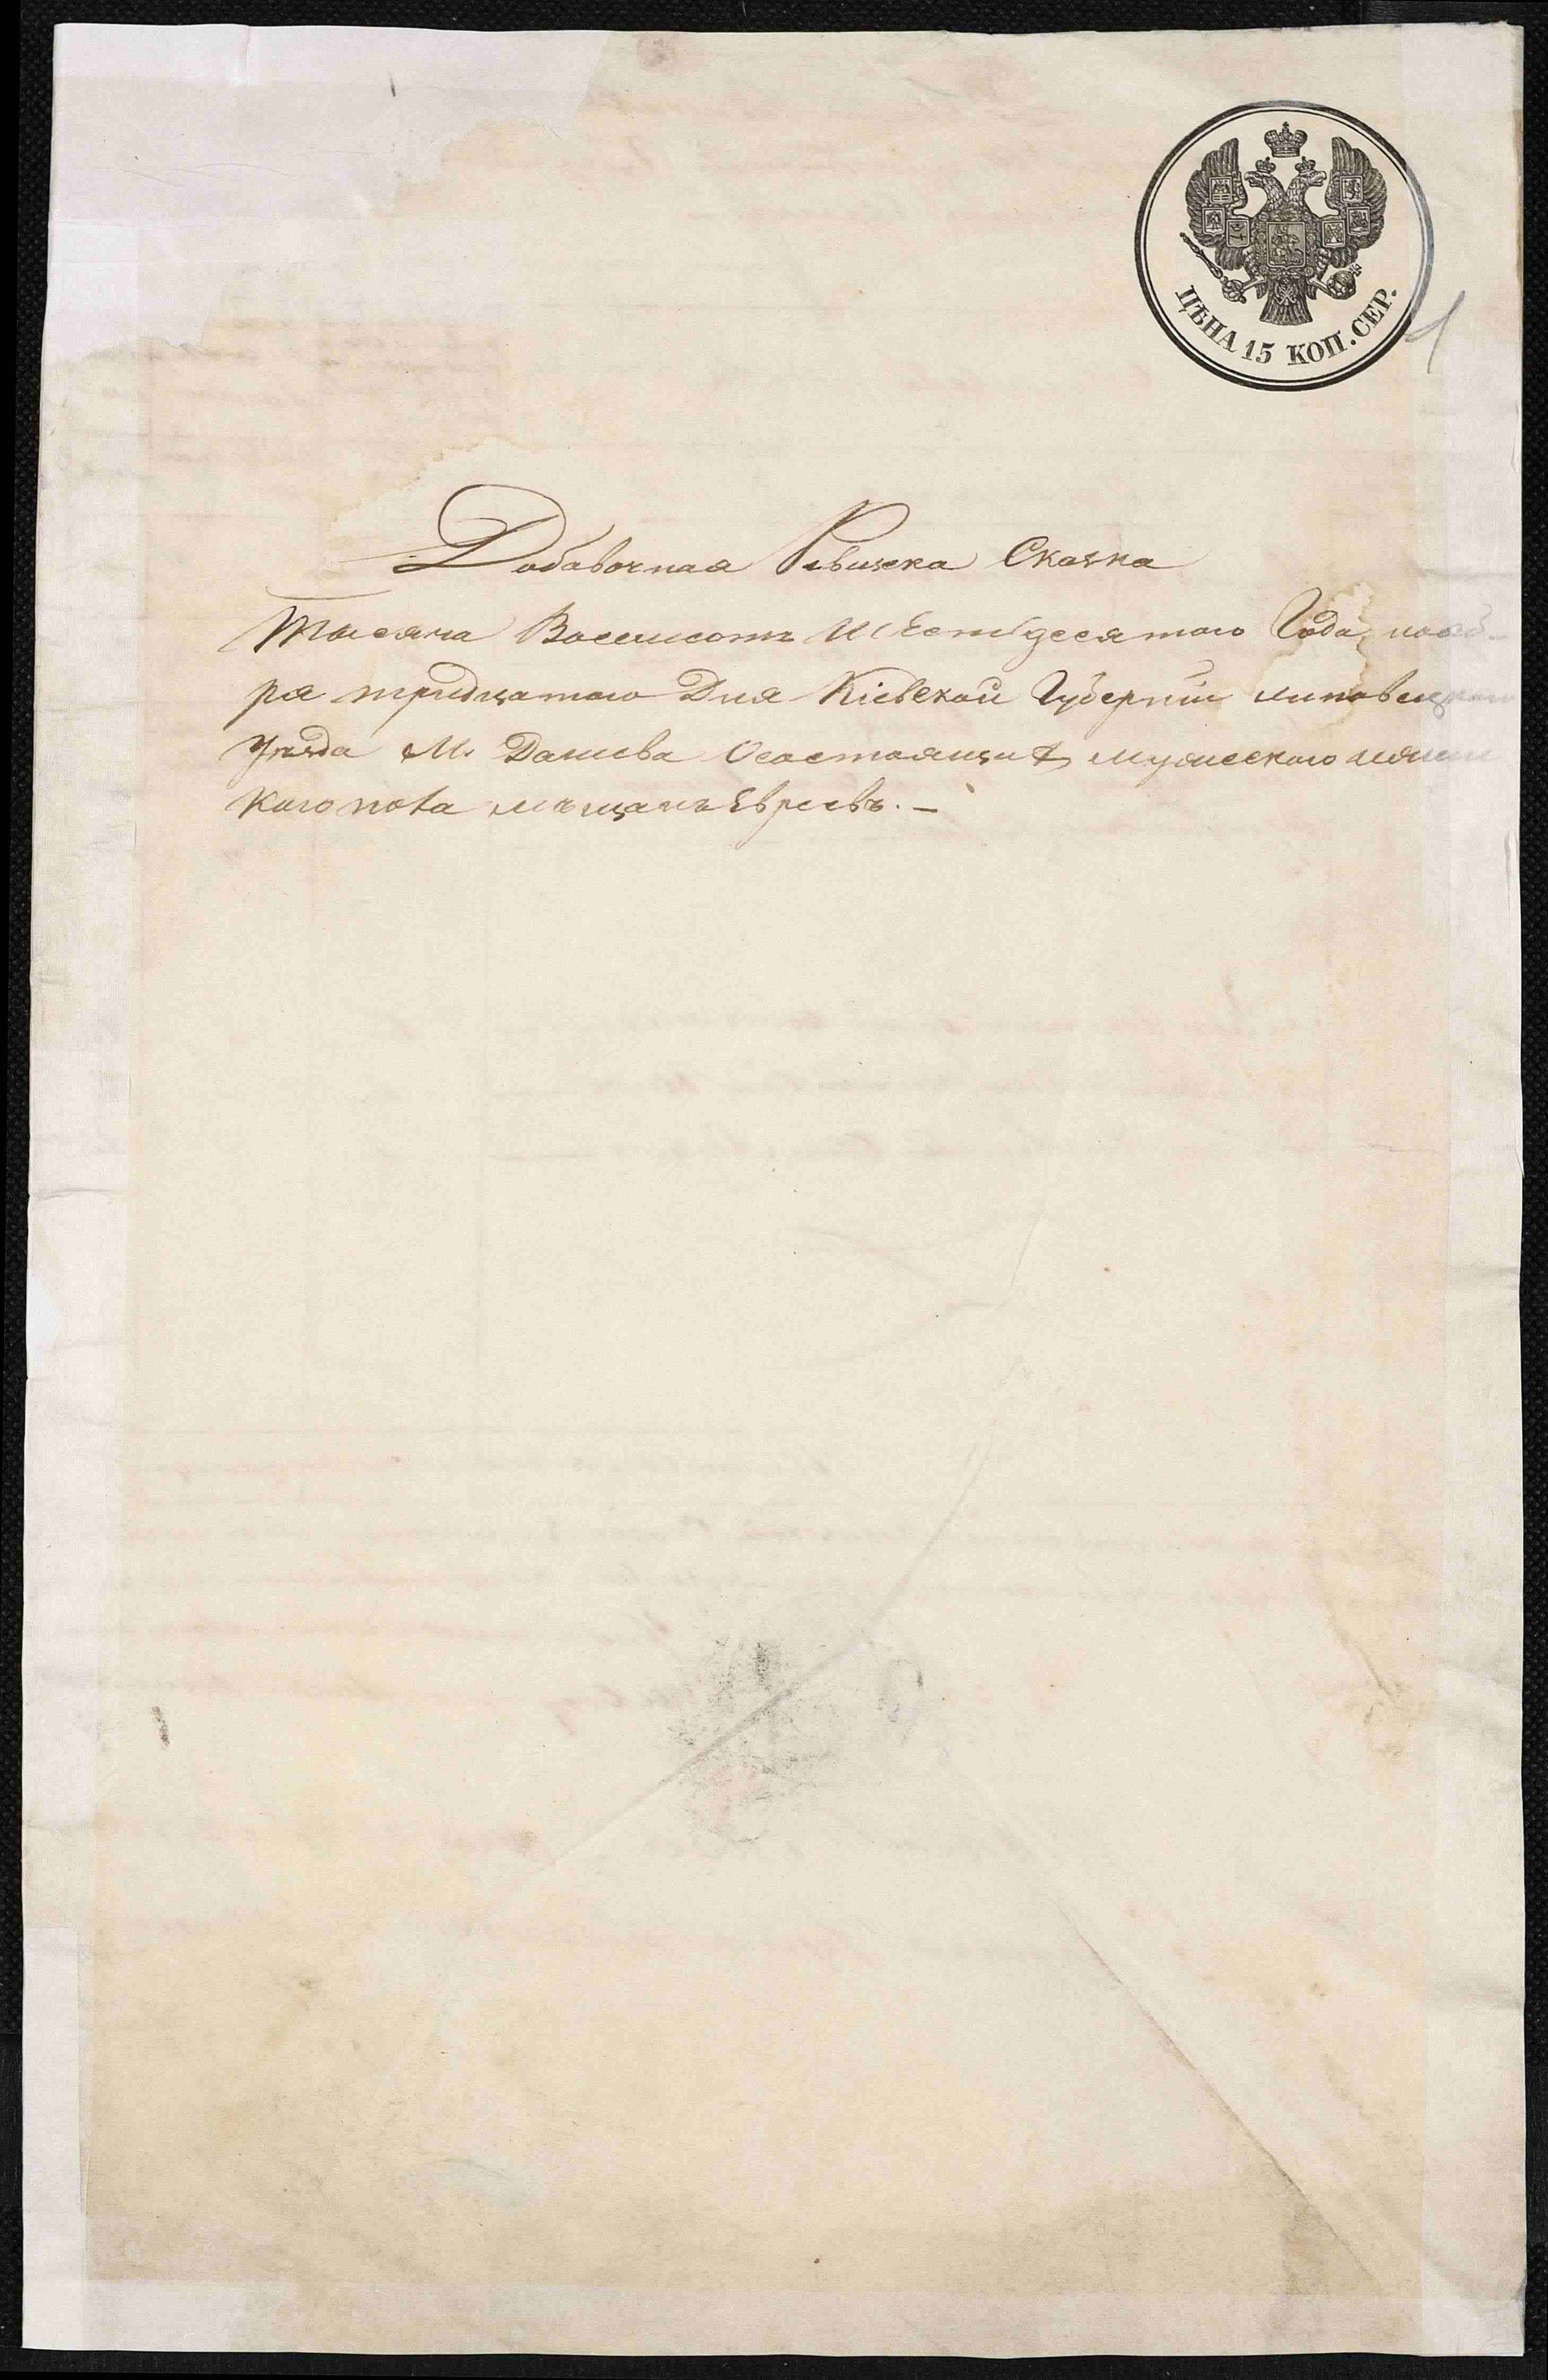 ЦѢНА 15 КОП. СЕР.
1
Добавочная Ревизска Сказка
Тысяча Восемсотъ Шестьдесятого Года, нояб-
ря тридцатого Дня Кіевской Губерніи липовецкого
Уѣзда М. Дашева О состоящихъ мужеского и женс
кого пола мѣщанъ Евреевъ. —